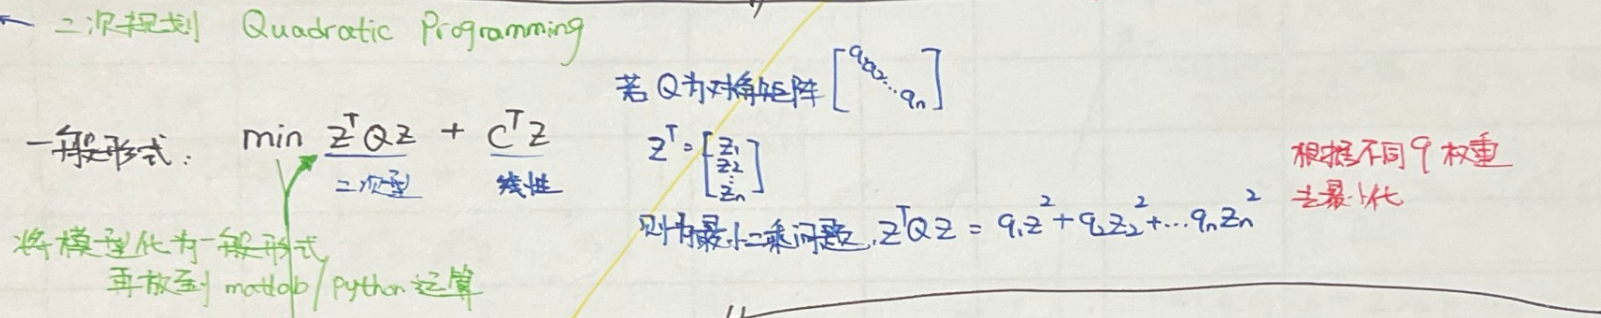 二次规划 Quadratic Programming
一般形式: min z^T Q z + C^T z
二次型 线性
将模型化为一般形式
再放到 matlab/python 运算
若 Q 为对角矩阵 [q1 q2 ⋱ qn]
z^T = [z1 z2 ⋮ zn]
则为最小二乘问题, z^T Q z = q1z^2 + q2z2^2 + ... qnzn^2
根据不同 q 权重
去最小化